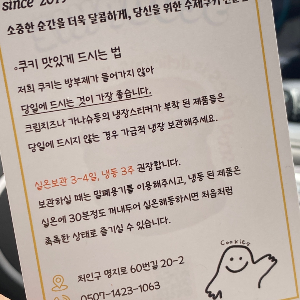 since 201
소중한 순간을 더욱 달콤하게, 당신을 위한 수제쿠키
◦쿠키 맛있게 드시는 법
저희 쿠키는 방부제가 들어가지 않아
당일에 드시는 것이 가장 좋습니다.
크림치즈나 가나슈등의 냉장스티커가 부착 된 제품들은
당일에 드시지 않는 경우 가급적 냉장 보관해주세요.
실온보관 3-4일, 냉동 3주 권장합니다.
보관하실 때는 밀폐용기를 이용해주시고, 냉동 된 제품은
실온에 30분정도 꺼내두어 실온해동하시면 처음처럼
촉촉한 상태로 즐기실 수 있습니다.
Cookies
처인구 명지로 60번길 20-2
0507-1423-1063